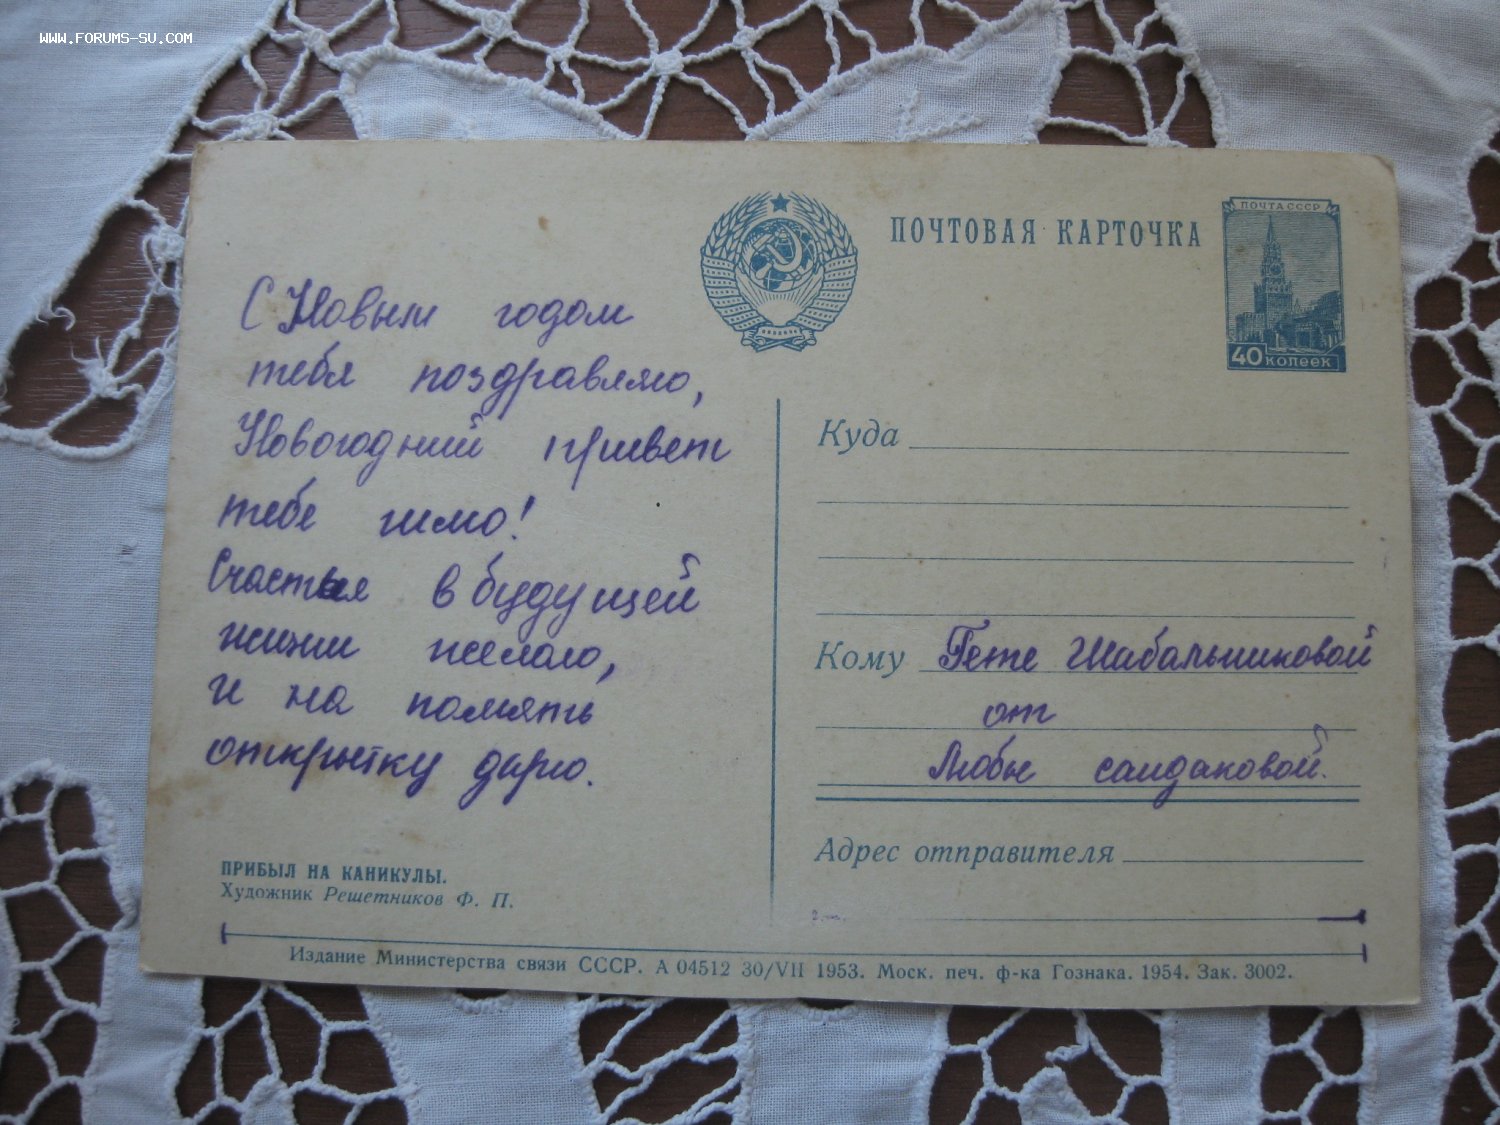 WWW.FORUMS-SU.COM
ПОЧТОВАЯ КАРТОЧКА
ПОЧТА СССР
40 КОПЕЕК
С Новым годом
тебя поздравляю,
Новогодний привет
тебе шлю!
Счастья в будущей
жизни желаю,
и на память
открытку дарю.
ПРИБЫЛ НА КАНИКУЛЫ.
Художник Решетников Ф. П.
Куда
Кому Гете Шабальниковой
от
Любы саидаковой.
Адрес отправителя
Издание Министерства связи СССР. А 04512 30/VII 1953. Моск. печ. ф-ка Гознака. 1954. Зак. 3002.